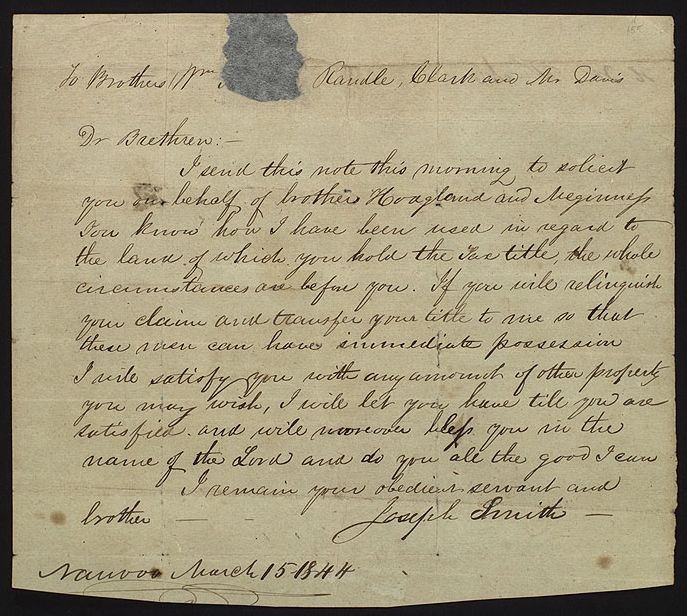 To Brothers Wm Randle, Clark and Mr Davis
Dr Brethren:—
I send this note this morning to solicit
you on behalf of brothers Hoagland and Meginness
You know how I have been used in regard to
the land of which you hold the Tax title, the whole
circumstances are before you. If you will relinquish
your claim and transfer your title to me so that
these men can have immediate possession
I will satisfy you with any amount of other property
you may wish, I will let you have till you are
satisfied. and will moreover bless you in the
name of the Lord and do you all the good I can
I remain your obedient servant and
brother — — Joseph Smith —
Nauvoo March 15 1844